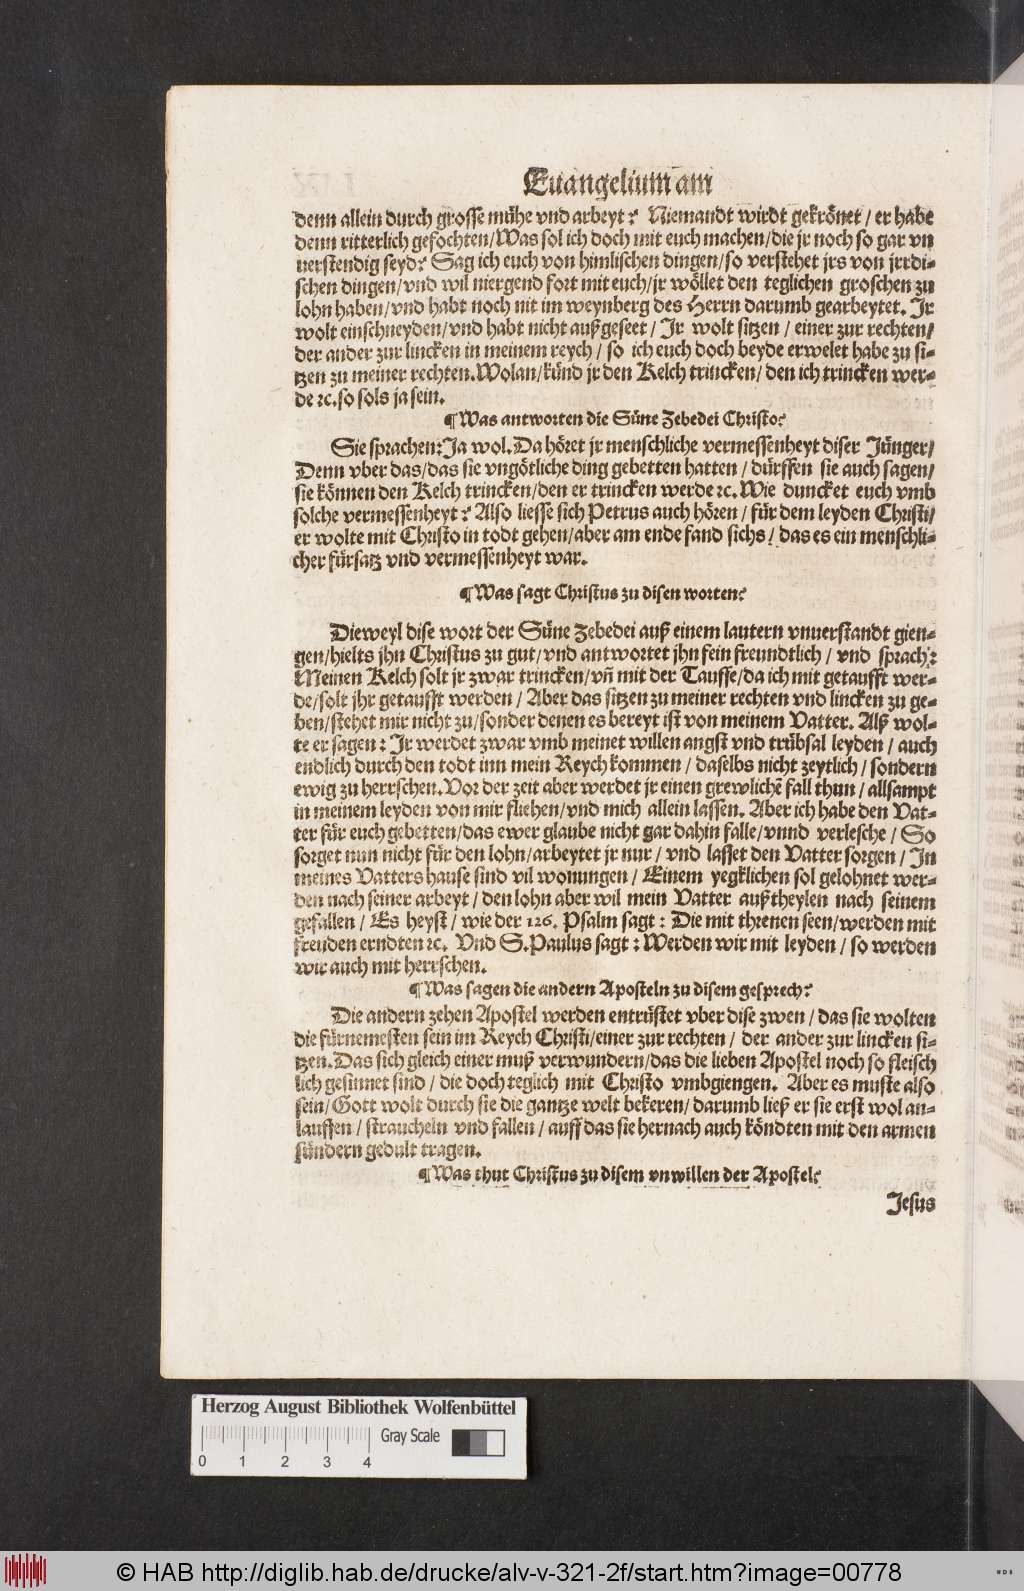 Euangelium am
denn allein durch grosse mühe vnd arbeyt? Niemandt wirdt gekrönet / er habe
denn ritterlich gefochten/Was sol ich doch mit euch machen/die jr noch so gar vn
uerstendig seyd? Sag ich euch von himlischen dingen/so verstehet jrs von jrrdi-
schen dingen/vnd wil niergend fort mit euch/jr wöllet den teglichen groschen zu
lohn haben/vnd habt noch nit im weynberg des Herrn darumb gearbeytet. Jr
wolt einschneyden/vnd habt nicht außgeseet / Jr wolt sitzen / einer zur rechten/
der ander zur lincken in meinem reych / so ich euch doch beyde erwelet habe zu si-
tzen zu meiner rechten.Wolan/künd jr den Kelch trincken/ den ich trincken wer-
de ꝛc.so sols ja sein.
¶Was antworten die Süne Zebedei Christo?
Sie sprachen:Ja wol.Da höret jr menschliche vermessenheyt diser Jünger/
Denn vber das/das sie vngötliche ding gebetten hatten / dürffen sie auch sagen/
sie können den Kelch trincken/den er trincken werde ꝛc.Wie duncket euch vmb
solche vermessenheyt? Also liesse sich Petrus auch hören / für dem leyden Christi/
er wolte mit Christo in todt gehen/aber am ende fand sichs / das es ein menschli-
cher fürsatz vnd vermessenheyt war.
¶Was sagt Christus zu disen worten?
Dieweyl dise wort der Süne Zebedei auß einem lautern vnuerstandt gien-
gen/hielts jhn Christus zu gut/vnd antwortet jhn fein freundtlich / vnd sprach:
Meinen Kelch solt jr zwar trincken/vñ mit der Tauffe/da ich mit getaufft wer-
de/solt jhr getaufft werden / Aber das sitzen zu meiner rechten vnd lincken zu ge-
ben/stehet mir nicht zu/sonder denen es bereyt ist von meinem Vatter. Alß wol-
te er sagen: Jr werdet zwar vmb meinet willen angst vnd trübsal leyden / auch
endlich durch den todt inn mein Reych kommen / daselbs nicht zeytlich / sondern
ewig zu herrschen.Vor der zeit aber werdet jr einen grewlichẽ fall thun / allsampt
in meinem leyden von mir fliehen/vnd mich allein lassen. Aber ich habe den Vat-
ter für euch gebetten/das ewer glaube nicht gar dahin falle/vnnd verlesche / So
sorget nun nicht für den lohn/arbeytet jr nur / vnd lasset den Vatter sorgen / Jn
meines Vatters hause sind vil wonungen / Einem yegklichen sol gelohnet wer-
den nach seiner arbeyt / den lohn aber wil mein Vatter außtheylen nach seinem
gefallen / Es heyst / wie der 126. Psalm sagt: Die mit threnen seen/werden mit
freuden erndten ꝛc. Vnd S.Paulus sagt: Werden wir mit leyden / so werden
wir auch mit herrschen.
¶Was sagen die andern Aposteln zu disem gesprech?
Die andern zehen Apostel werden entrüstet vber dise zwen / das sie wolten
die fürnemesten sein im Reych Christi/einer zur rechten / der ander zur lincken si-
tzen.Das sich gleich einer muß verwundern/das die lieben Apostel noch so fleisch
lich gesinnet sind / die doch teglich mit Christo vmbgiengen. Aber es muste also
sein/Gott wolt durch sie die gantze welt bekeren/darumb ließ er sie erst wol an-
lauffen / straucheln vnd fallen / auff das sie hernach auch köndten mit den armen
sündern gedult tragen.
¶Was thut Christus zu disem vnwillen der Apostel?
Jesus
Herzog August Bibliothek Wolfenbüttel
Gray Scale
0 1 2 3 4
© HAB http://diglib.hab.de/drucke/alv-v-321-2f/start.htm?image=00778